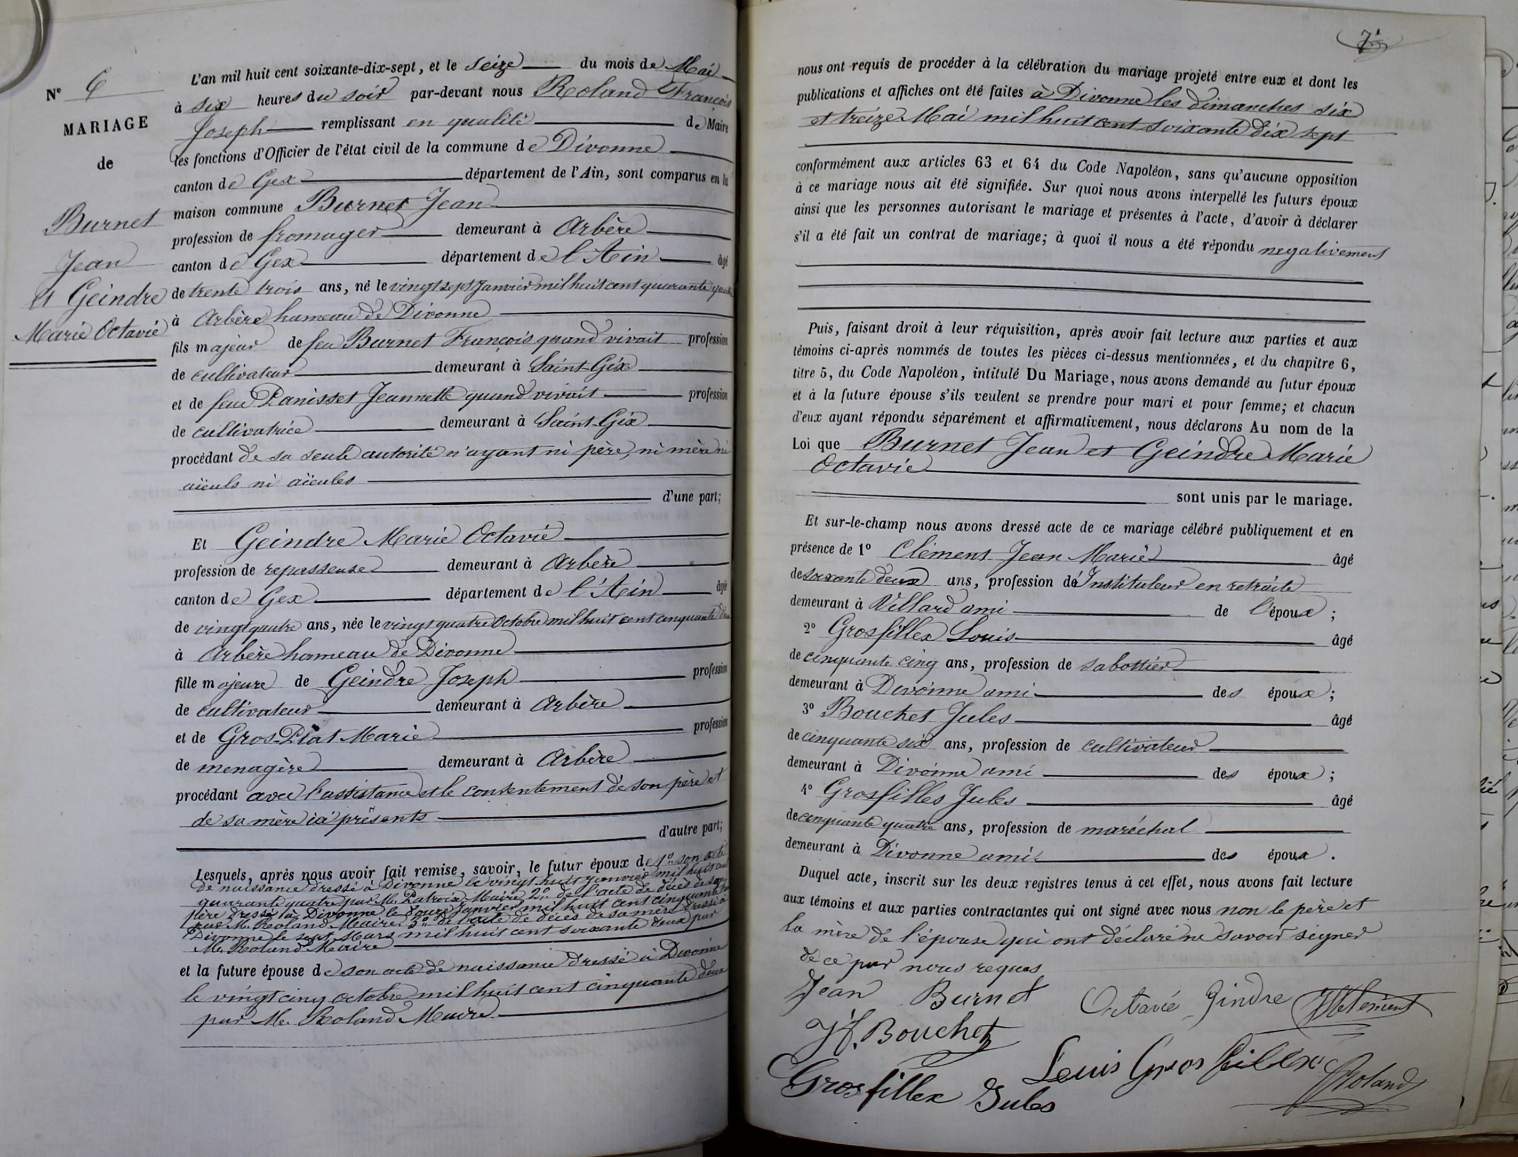 N° 6
MARIAGE
de
Burnet
Jean
et Geindre
Marie Octavie
L'an mil huit cent soixante-dix-sept, et le seize du mois de Mai
à six heures du soir par-devant nous Roland François
Joseph remplissant en qualité de Maire
les fonctions d'Officier de l'état civil de la commune de Divonne
canton de Gex département de l'Ain, sont comparus en la
maison commune Burnet Jean
profession de fromager demeurant à Arbère
canton de Gex département de l'Ain âgé
de trente trois ans, né le vingt sept Janvier mil huit cent quarante quatre
à Arbère hameau de Divonne
fils majeur de feu Burnet François quand vivait profession
de cultivateur demeurant à Saint-Gix
et de feue Panisset Jeannette quand vivait profession
de cultivatrice demeurant à Saint-Gix
procédant de sa seule autorité n'ayant ni père, ni mère ni
aïeuls ni aïeules
d'une part;
Et Geindre Marie Octavie
profession de repasseuse demeurant à Arbère
canton de Gex département de l'Ain âgée
de vingt quatre ans, née le vingt quatre Octobre mil huit cent cinquante deux
à Arbère hameau de Divonne
fille majeure de Geindre Joseph profession
de cultivateur demeurant à Arbère
et de Gros Piat Marie profession
de menagère demeurant à Arbère
procédant avec l'assistance et le consentement de son père et
de sa mère ici présents
d'autre part;
Lesquels, après nous avoir fait remise, savoir, le futur époux de 1° son acte
de naissance dressé à Divonne le vingt huit Janvier mil huit cent
quarante quatre par Mr. Maire 2° de l'acte de décès de son
père dressé à Divonne le douze Janvier mil huit cent cinquante
par M. Roland Maire 3° de l'acte de décès de sa mère dressé à
Divonne le sept Mars mil huit cent soixante deux par
M. Roland Maire
et la future épouse de son acte de naissance dressé à Divonne
le vingt cinq octobre mil huit cent cinquante deux
par M. Roland Maire.
7
nous ont requis de procéder à la célébration du mariage projeté entre eux et dont les
publications et affiches ont été faites à Divonne les dimanches six
et treize Mai mil huit cent soixante dix sept
conformément aux articles 63 et 64 du Code Napoléon, sans qu'aucune opposition
à ce mariage nous ait été signifiée. Sur quoi nous avons interpellé les futurs époux
ainsi que les personnes autorisant le mariage et présentes à l'acte, d'avoir à déclarer
s'il a été fait un contrat de mariage; à quoi il nous a été répondu negativement
Puis, faisant droit à leur réquisition, après avoir fait lecture aux parties et aux
témoins ci-après nommés de toutes les pièces ci-dessus mentionnées, et du chapitre 6,
titre 5, du Code Napoléon, intitulé Du Mariage, nous avons demandé au futur époux
et à la future épouse s'ils veulent se prendre pour mari et pour femme; et chacun
d'eux ayant répondu séparément et affirmativement, nous déclarons Au nom de la
Loi que Burnet Jean et Geindre Marie
Octavie
sont unis par le mariage.
Et sur-le-champ nous avons dressé acte de ce mariage célébré publiquement et en
présence de 1° Clément Jean Marie âgé
de soixante deux ans, profession d'Instituteur en retraite
demeurant à Villard ami de l'époux;
2° Grosfillex Louis âgé
de cinquante cinq ans, profession de sabottier
demeurant à Divonne ami des époux;
3° Bouchet Jules âgé
de cinquante six ans, profession de cultivateur
demeurant à Divonne ami des époux;
4° Grosfilles Jules âgé
de cinquante quatre ans, profession de maréchal
demeurant à Divonne ami des époux.
Duquel acte, inscrit sur les deux registres tenus à cet effet, nous avons fait lecture
aux témoins et aux parties contractantes qui ont signé avec nous non le père et
la mère de l'épouse qui ont déclaré ne savoir signer
de ce par nous requis
Jean Burnet Octavie Gindre Clement
Jf. Bouchet
Louis Grosfillex Roland
Grosfillex Jules